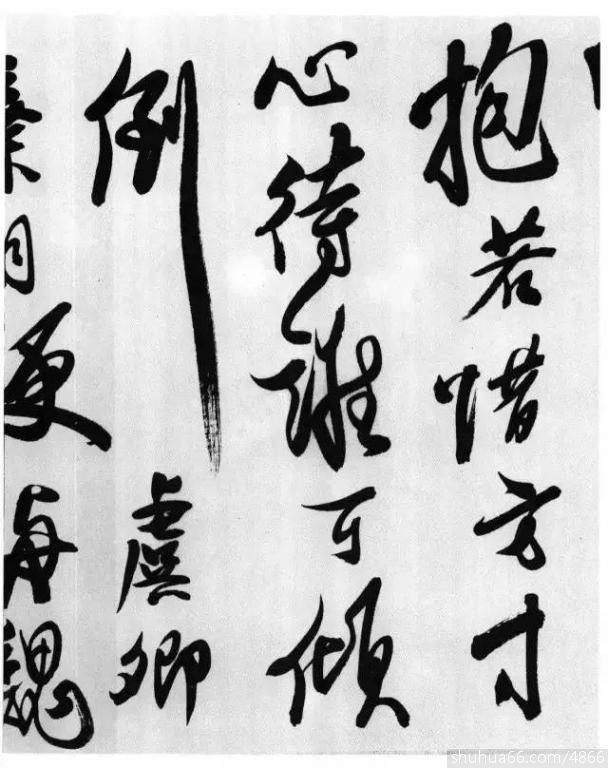 抱若惜方寸
心待誰可傾
倒虞卿
魏
shuhua66.com/4866